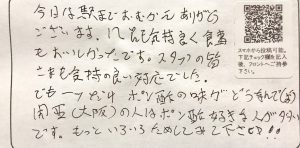 今日は駅までおむかえ ありがとう
ございます。風呂も気持良く食事
もおいしかったです。スタッフの皆
さまも気持の良い対応でした。
でも一つだけ ポン酢の味がどうも…で(笑)
関西(大阪)の人はポン酢好きな人が多い
です。もっといろいろためしてみて下さい!!
スマホから投稿可能。
下記チェック欄を記入
後、フロントへご持参
下さい。